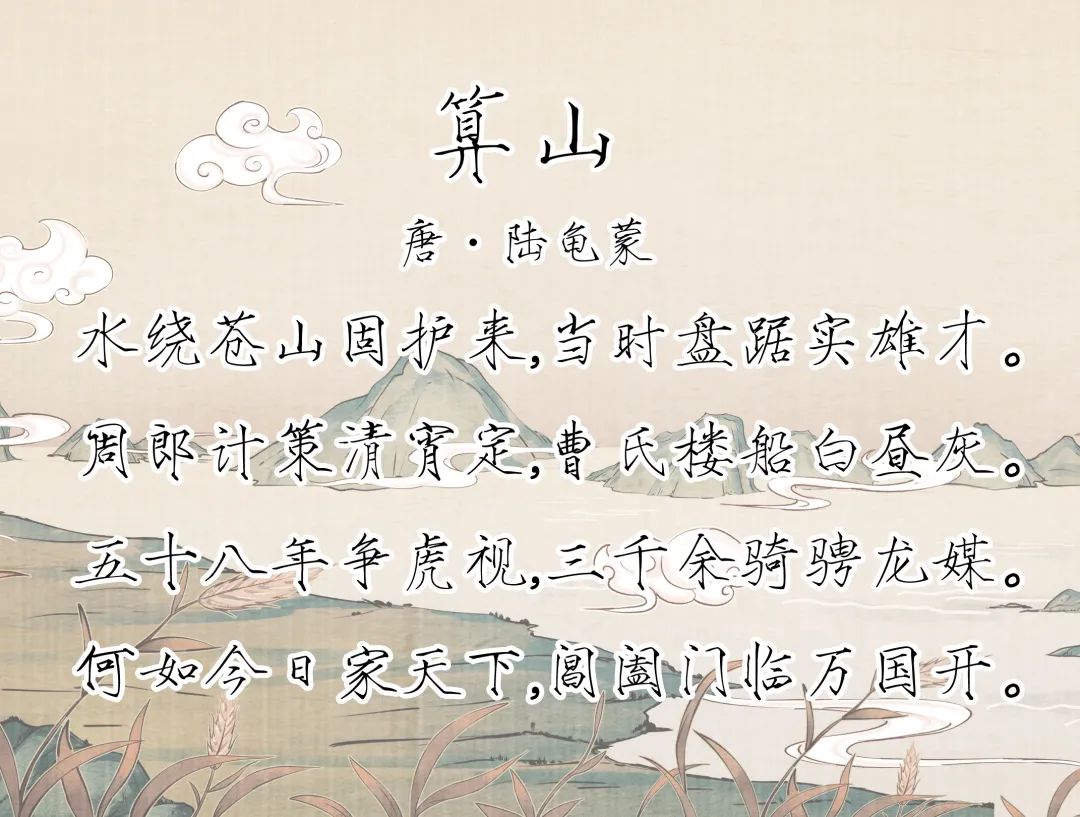 算山
唐·陆龟蒙
水绕苍山固护来,当时盘踞实雄才。
周郎计策清宵定,曹氏楼船白昼灰。
五十八年争虎视,三千余骑骋龙媒。
何如今日家天下,阊阖门临万国开。